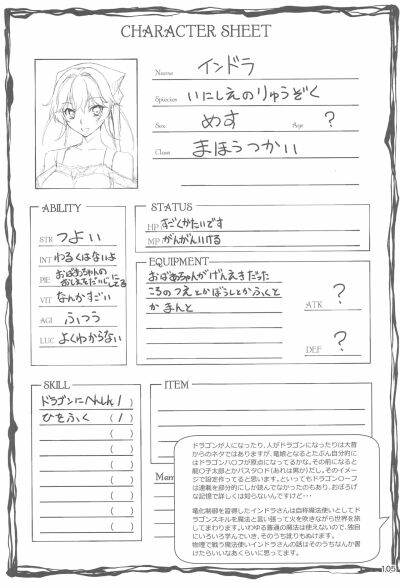 CHARACTER SHEET
Name インドラ
Spicies いにしえのりゅうぞく
Sex めす Age ?
Class まほうつかい
ABILITY
STR つよい
INT わるくはないよ
PIE おばあちゃんの
おしえをだいじにしてる
VIT なんかすごい
AGI ふつう
LUC よくわからない
STATUS
HP すごくかたいです
MP がんがんいける
EQUIPMENT
おばあちゃんがげんえきだった
ころのつえとかぼうしとかふくと
かまんと
ATK ?
DEF ?
SKILL
ドラゴンにへんしん ( 1 )
ひをふく ( 1 )
ITEM
ドラゴンが人になったり、人がドラゴンになったりは大昔
からのネタではありますが、竜娘となるとたぶん自分的に
はドラゴンハ○フが原点になってるかな。その前になると
龍○子太郎とかバスタ○ド(あれは男か)だし。そのイメー
ジで設定作ってると思います。といってもドラゴンハーフ
は連載を部分的にしか読んでなかったのもあり、おぼろげ
な記憶で詳しくは知らないんですけど…
竜化制御を習得したインドラさんは自称魔法使いとしてド
ラゴンスキルを魔法と言い張って火を吹きながら世界を旅
してまわります。いわゆる普通の魔法は使えないので、独自
にいろいろ学んでいき、そのうち訛りもぬけます。
物理で戦う魔法使いインドラさんの話はそのうちなんか書
けたらいいなあくらいに思ってます。
105